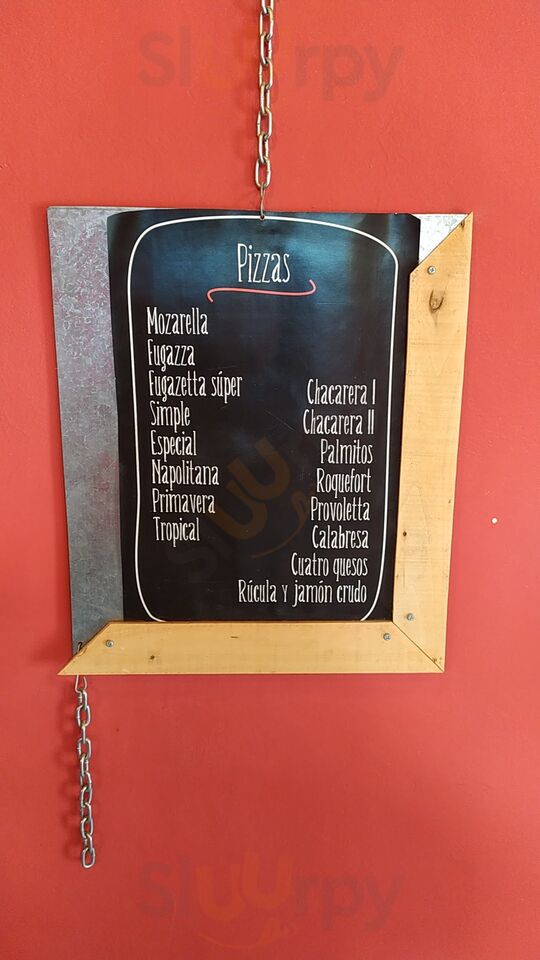 Sluurpy
Pizzas
Mozarella
Fugazza
Fugazetta súper
Simple
Especial
Napolitana
Primavera
Tropical
Chacarera I
Chacarera II
Palmitos
Roquefort
Provoletta
Calabresa
Cuatro quesos
Rúcula y jamón crudo
Sluurpy
Sluurpy